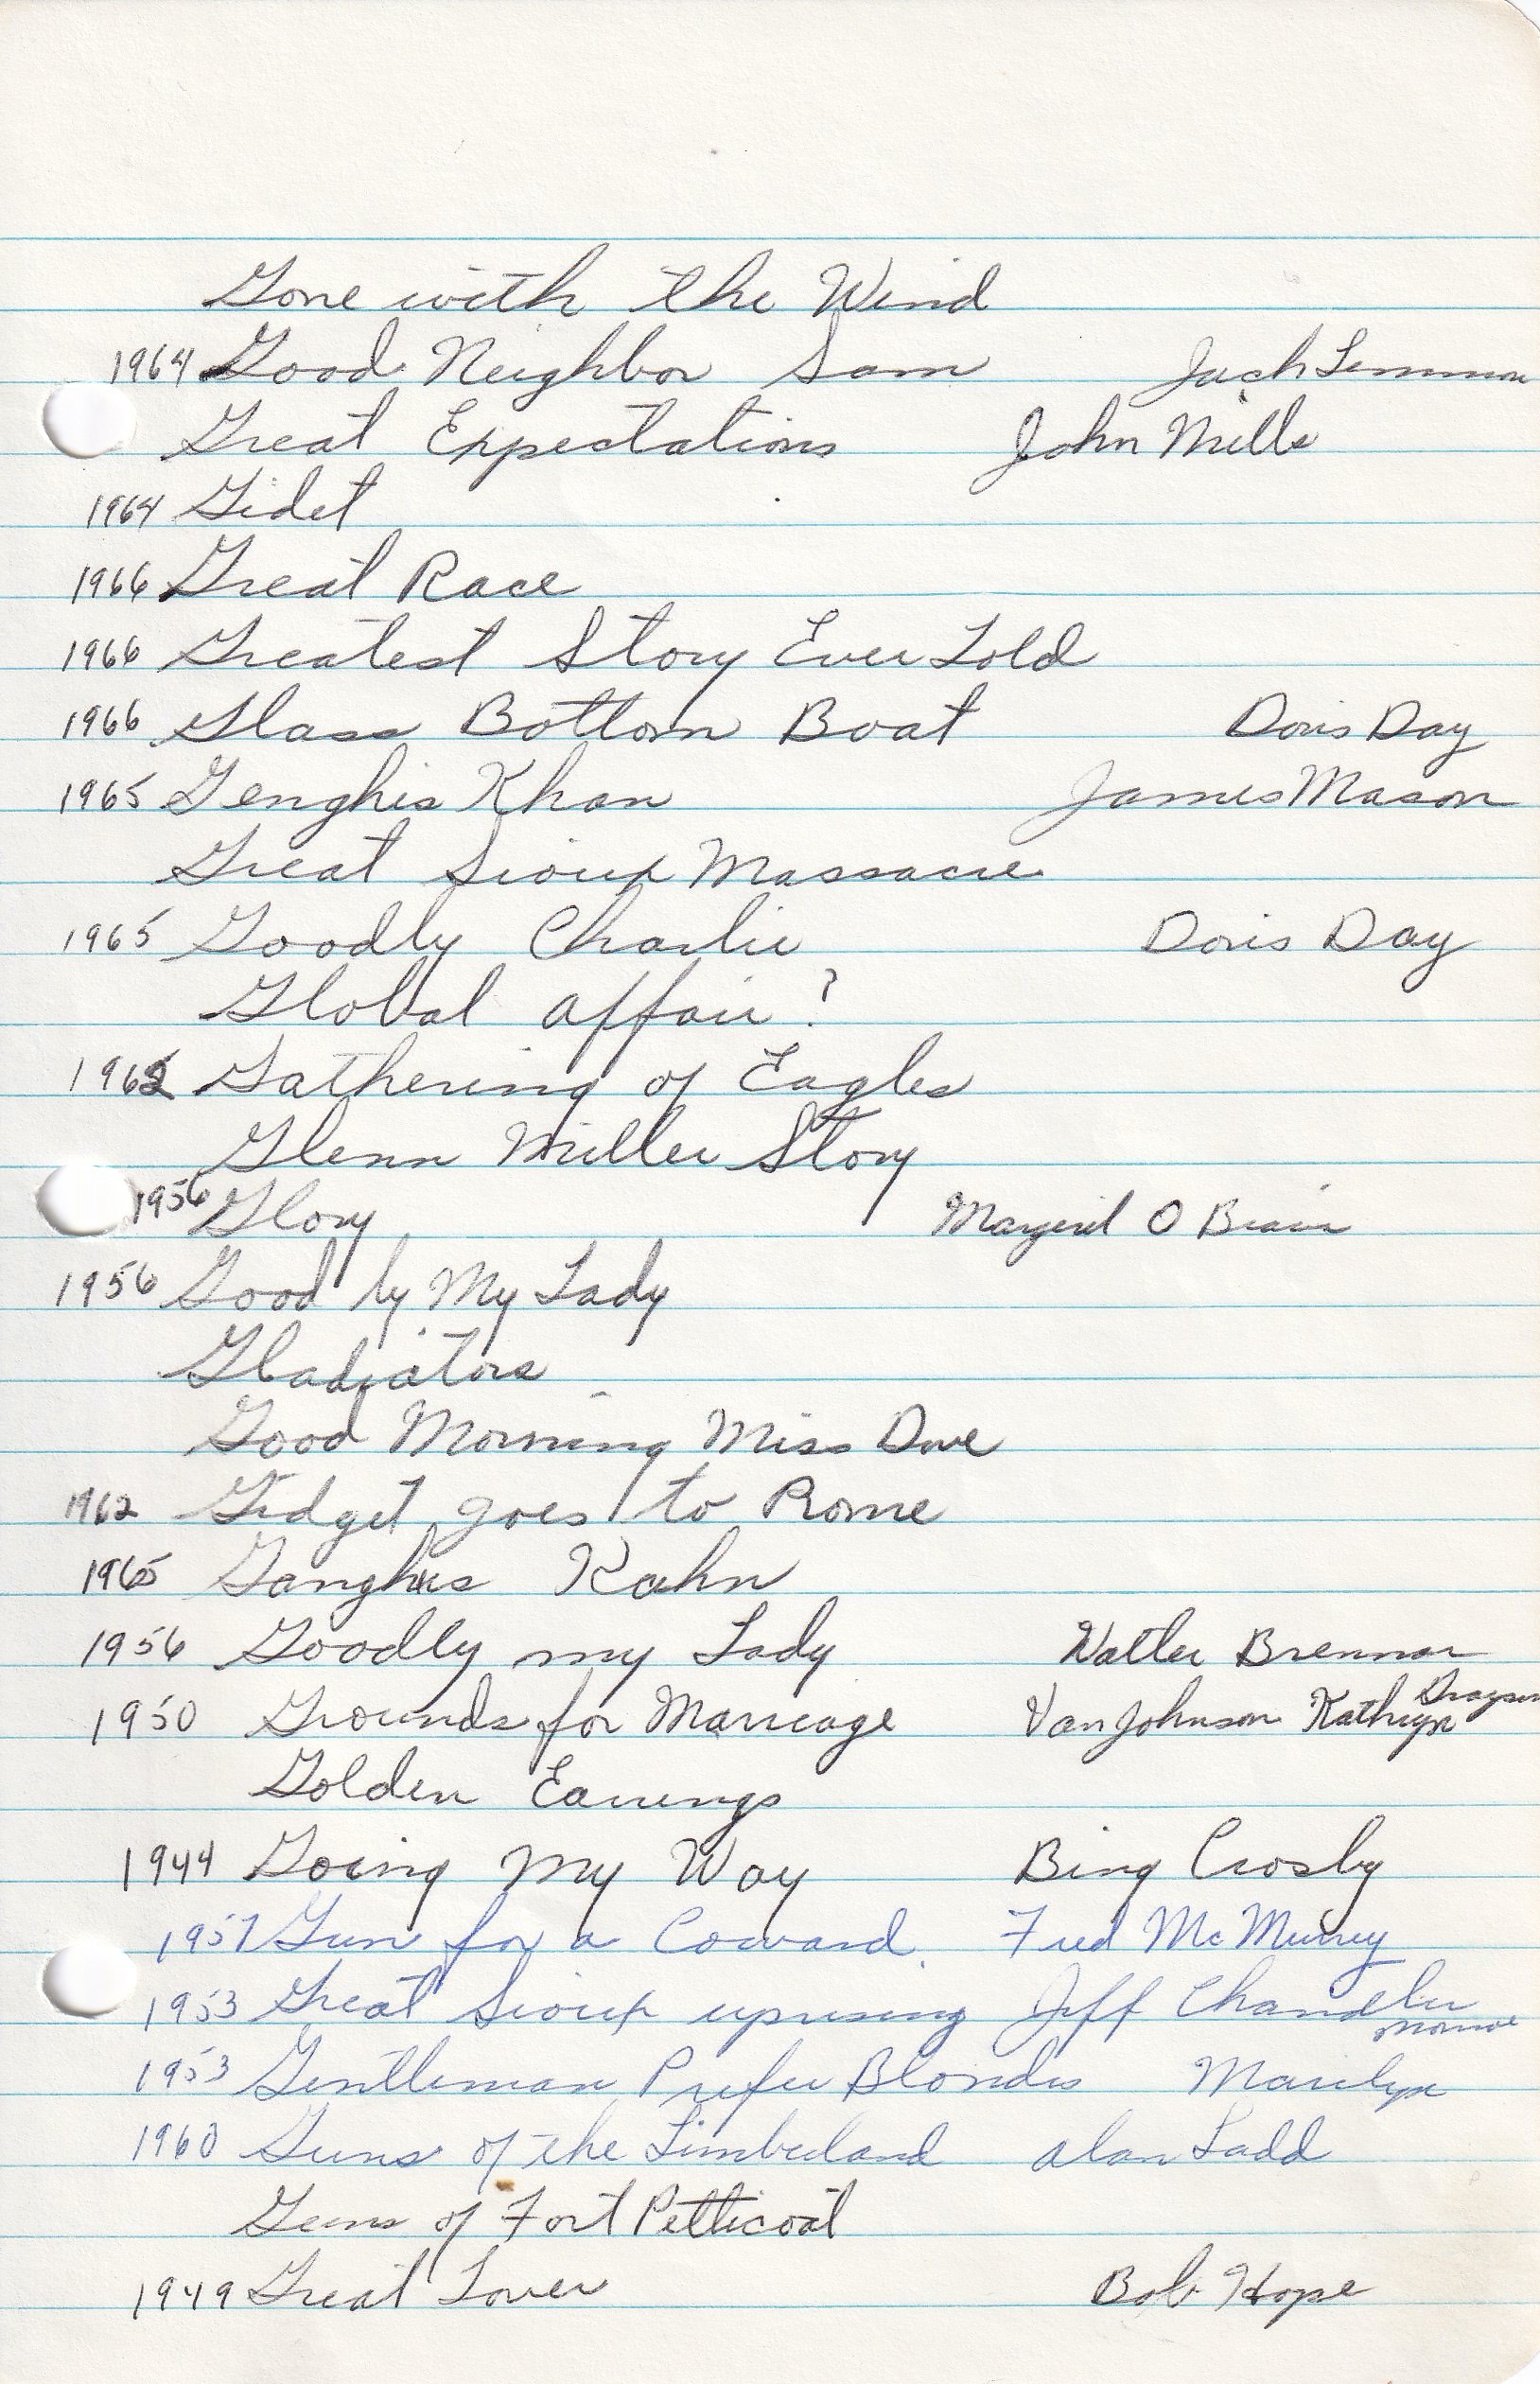 Gone with the Wind
1964 Good Neighbor Sam Jack Lemmon
Great Expectations John Mills
1964 Gidet
1966 Great Race
1966 Greatest Story Ever Told
1966 Glass Bottom Boat Doris Day
1965 Genghis Khan James Mason
Great Sioux Massacre
1965 Goodby Charlie Doris Day
Global affair?
1962 Gathering of Eagles
Glenn Miller Story
1956 Glory Margeret O Brain
1956 Good by My Lady
Gladiators
Good Morning Miss Dove
1962 Gidget goes to Rome
1965 Ganghis Kahn
1956 Goodby my Lady Walter Brennan
1950 Grounds for Marreage Van Johnson Kathryn Grayson
Golden Earrings
1944 Going My Way Bing Crosby
1957 Gun for a Coward Fred McMurrey
1953 Great Sioux uprising Jeff Chandler
1953 Gentleman Prefer Blondes Marilyn Monroe
1960 Guns of the Timberland Alan Ladd
Guns of Fort Petticoat
1949 Great Lover Bob Hope